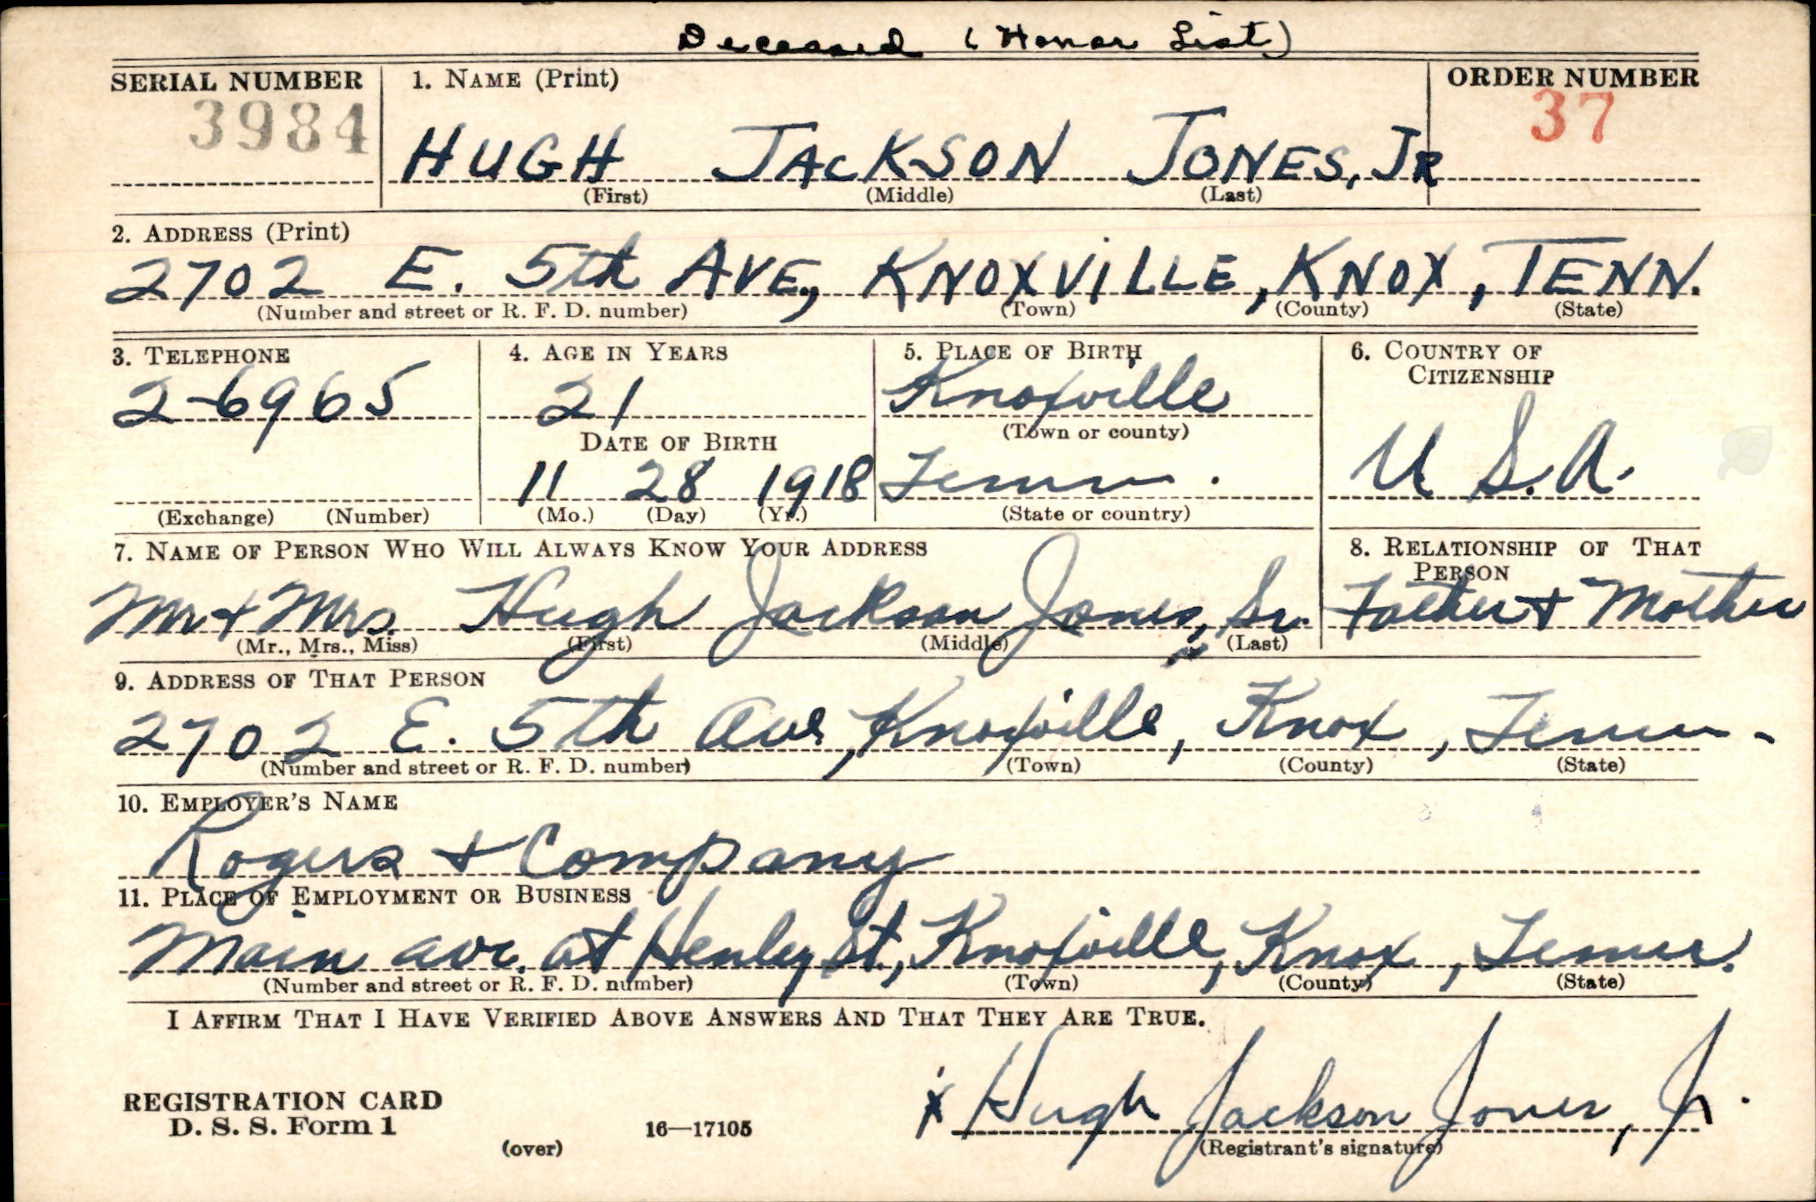 Deceased (Honor List)
SERIAL NUMBER 1. NAME (Print) ORDER NUMBER
3984 HUGH JACKSON JONES, JR 37
(First) (Middle) (Last)
2. ADDRESS (Print)
2702 E. 5th AVE, KNOXVILLE, KNOX, TENN.
(Number and street or R. F. D. number) (Town) (County) (State)
3. TELEPHONE 4. AGE IN YEARS 5. PLACE OF BIRTH 6. COUNTRY OF CITIZENSHIP
2-6965 21 Knoxville
(Town or county)
DATE OF BIRTH
11 28 1918 Tenn. U.S.A.
(Exchange) (Number) (Mo.) (Day) (Yr.) (State or country)
7. NAME OF PERSON WHO WILL ALWAYS KNOW YOUR ADDRESS 8. RELATIONSHIP OF THAT PERSON
Mr + Mrs. Hugh Jackson Jones, Sr. Father + Mother
(Mr., Mrs., Miss) (First) (Middle) (Last)
9. ADDRESS OF THAT PERSON
2702 E. 5th Ave, Knoxville, Knox, Tenn.
(Number and street or R. F. D. number) (Town) (County) (State)
10. EMPLOYER'S NAME
Rogers + Company
11. PLACE OF EMPLOYMENT OR BUSINESS
Main ave. at Henley St., Knoxville, Knox, Tenn.
(Number and street or R. F. D. number) (Town) (County) (State)
I AFFIRM THAT I HAVE VERIFIED ABOVE ANSWERS AND THAT THEY ARE TRUE.
x Hugh Jackson Jones, Jr.
(Registrant's signature)
REGISTRATION CARD
D. S. S. Form 1 16—17105
(over)